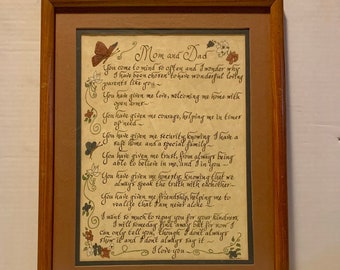 Mom and Dad
You come to mind so often and I wonder why
I have been chosen to have wonderful loving
parents like you~
You have given me love, welcoming me home with
open arms~
You have given me courage, helping me in times
of need~
You have given me security, knowing I have a
safe home and a special family~
You have given me trust, from always being
able to believe in me, and I in you~
You have given me honesty, knowing that we
always speak the truth with each other~
You have given me friendship, helping me to
realize that I am never alone~
I want so much to repay you for your kindness,
I will someday find a way but for now I
can only tell you, though I don't always
show it and I don't always say it~
I love you~